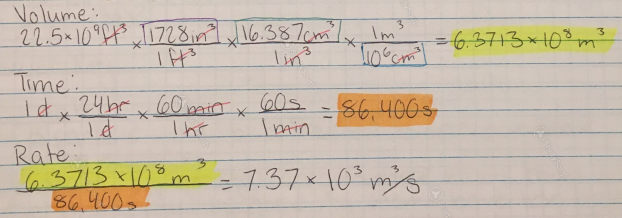 Volume:
22.5×10⁹ft³ × 1728in³/1ft³ × 16.387cm³/1in³ × 1m³/10⁶cm³ = 6.3713×10⁸m³
Time:
1d × 24hr/1d × 60min/1hr × 60s/1min = 86,400s
Rate:
6.3713×10⁸m³/86,400s = 7.37×10³m³/s